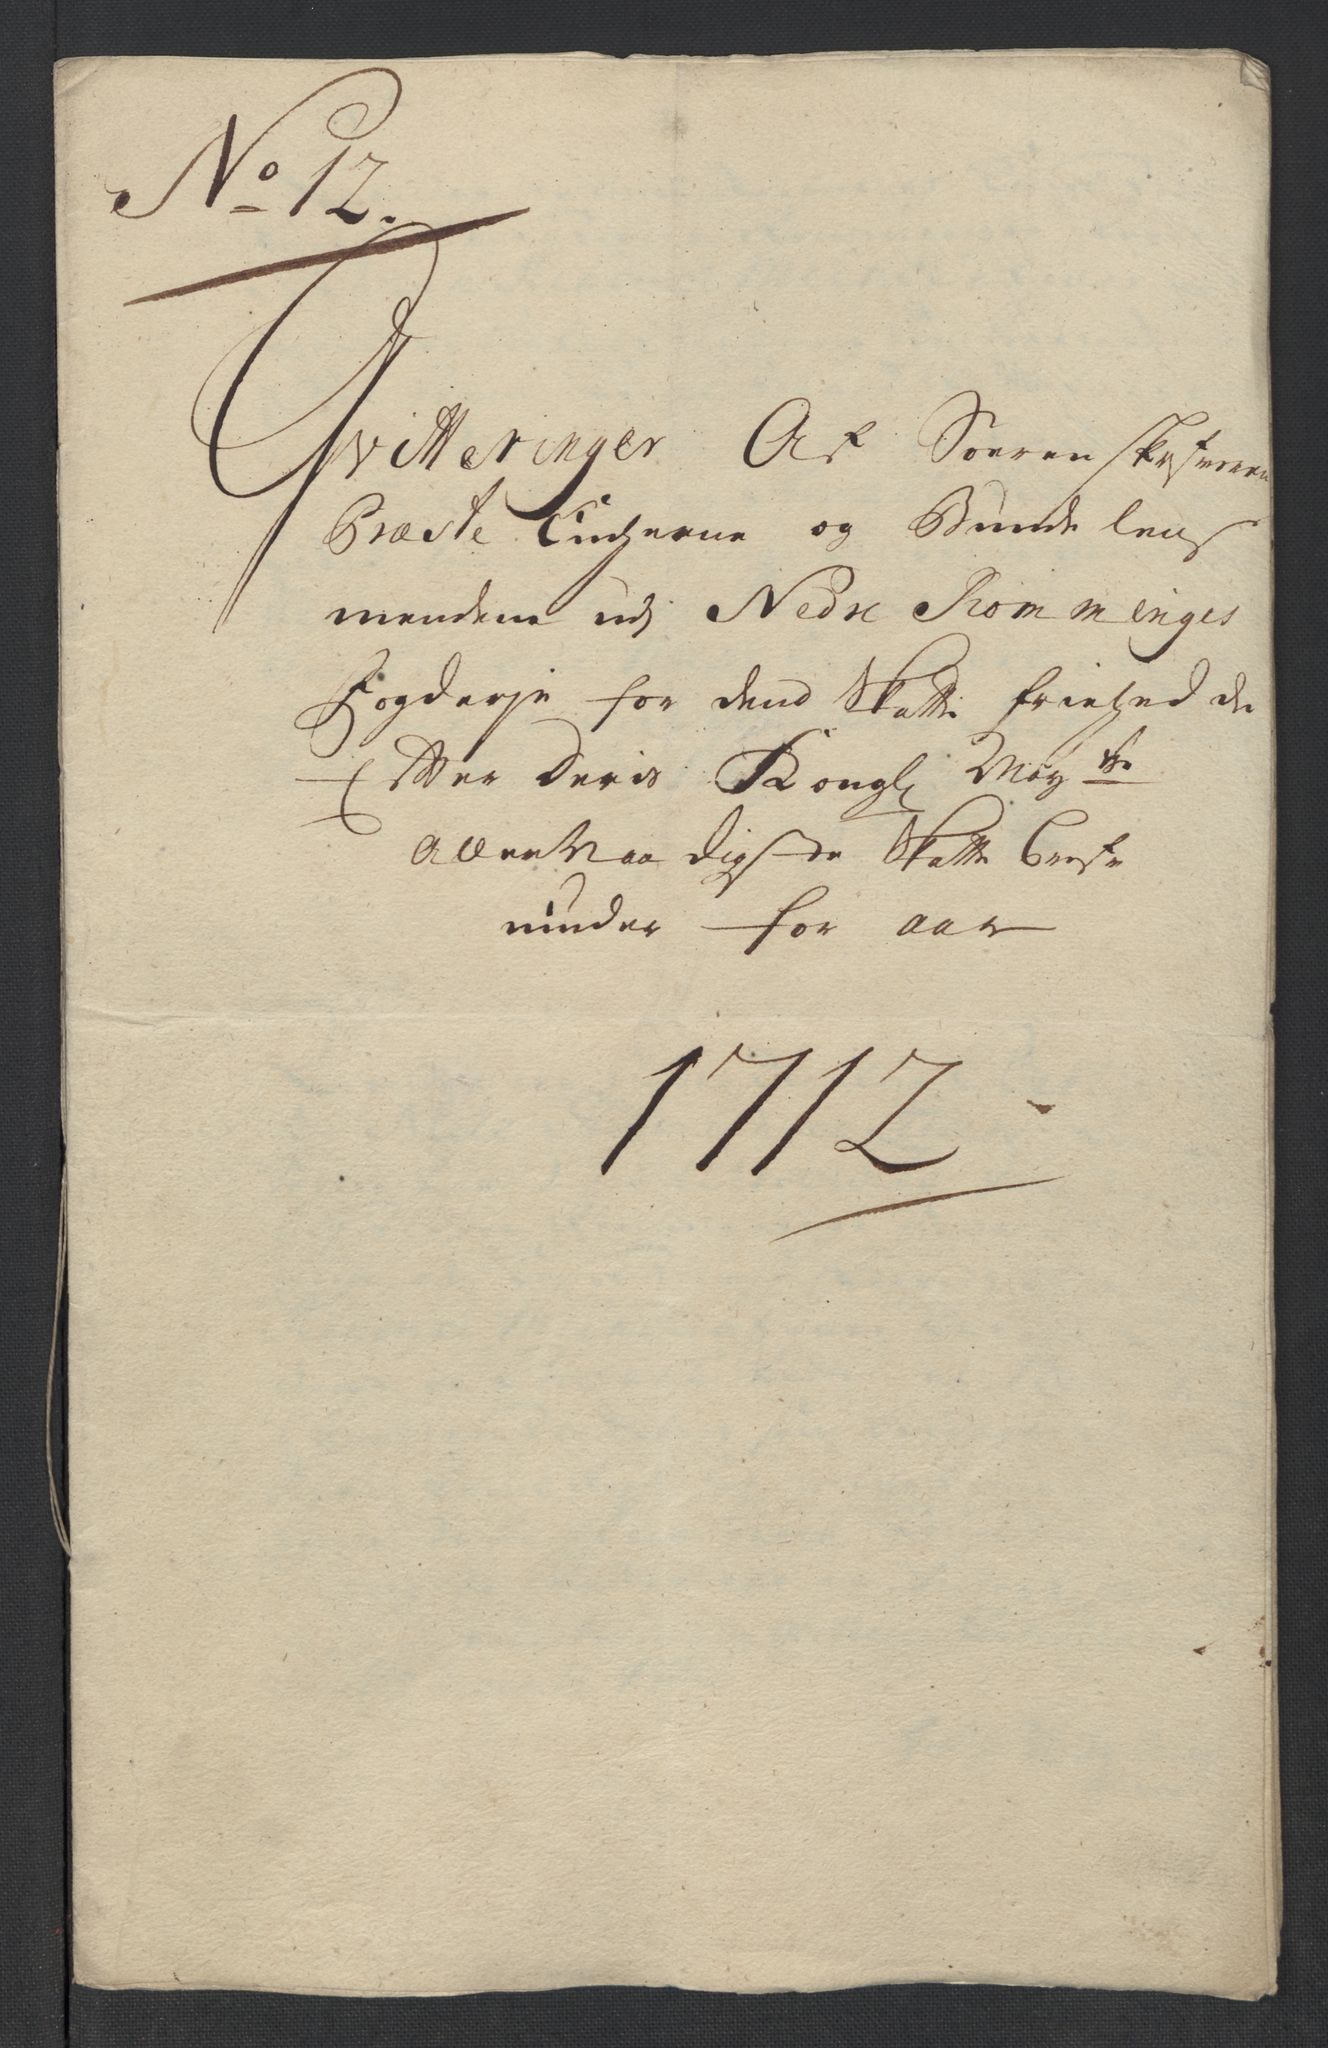 No 12.
Qvitteringer Af Soerenskrifveren
Præste Enckerne og Bunde lens
mendene udj Nedre Rommeriges
Fogderje for dend Skatte frihed de
Efter deris Kongl May tts
allernaadigste Skatte brefv
niuder for aar
1712